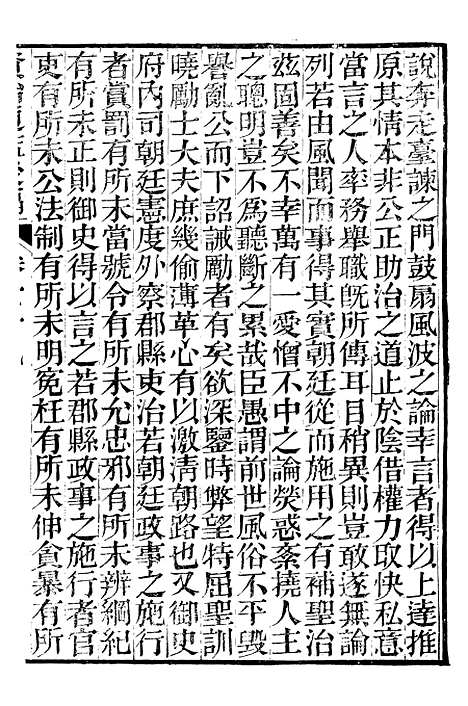 說奔走臺諫之門鼓扇風波之論幸言者得以上達推
原其情本非公正助治之道止於陰借權力取快私意
當言之人率務舉職旣所傳耳目稍異則豈敢遂無論
列若由風聞而事得其實朝廷從而施用之有補聖治
茲固善矣不幸萬有一愛憎不中之論熒惑紊撓人主
之聰明豈不爲聽斷之累哉臣愚謂前世風俗不平毀
譽亂公而下詔誡勵者有矣欲深鑒時弊望特屈聖訓
曉勵士大夫庶幾偷薄革心有以激淸朝路也又御史
府內司朝廷憲度外察郡縣吏治若朝廷政事之施行
者賞罰有所未當號令有所未允忠邪有所未辨綱紀
有所未正則御史得以言之若郡縣政事之施行者官
吏有所未公法制有所未明寃枉有所未伸貪暴有所